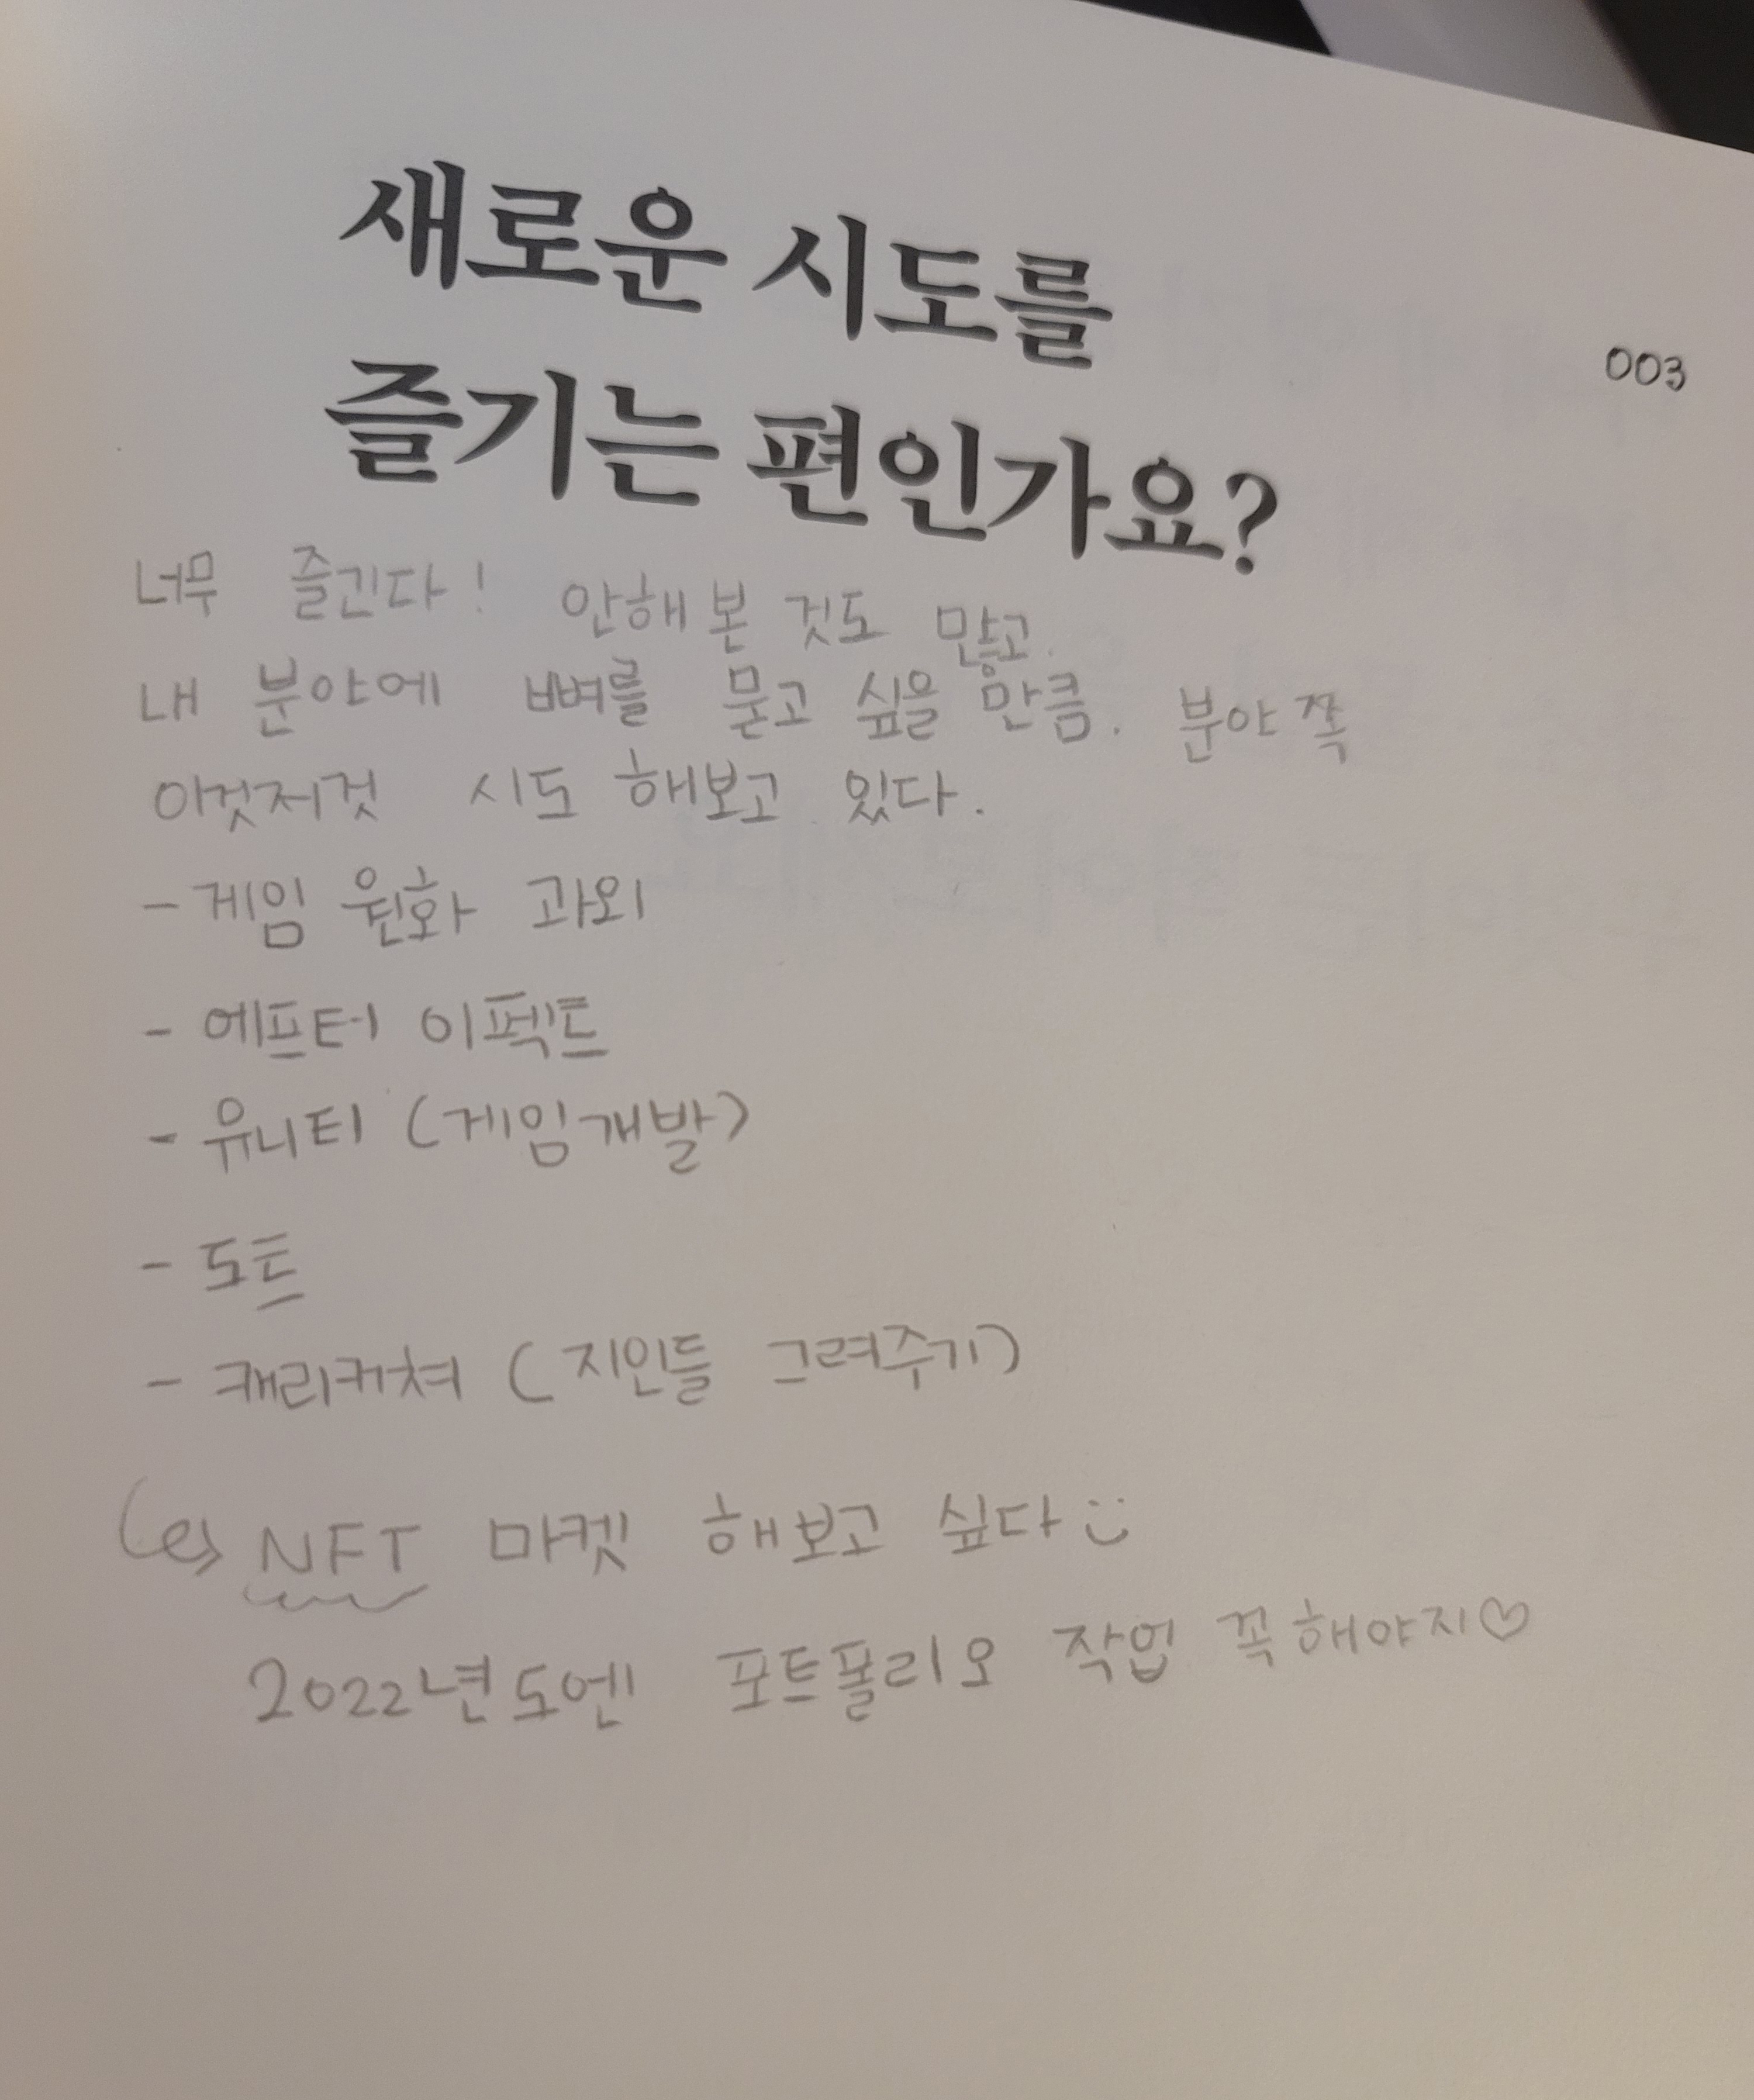 새로운 시도를
003
즐기는 편인가요?
너무 즐긴다! 안해본 것도 많고.
내 분야에 뼈를 묻고 싶을 만큼. 분야쪽
이것저것 시도 해보고 있다.
- 게임 원화 과외
- 에프터 이펙트
- 유니티 (게임개발)
- 도트
- 캐리커쳐 (지인들 그려주기)
NFT 마켓 해보고 싶다
2022년도엔 포트폴리오 작업 꼭해야지♡